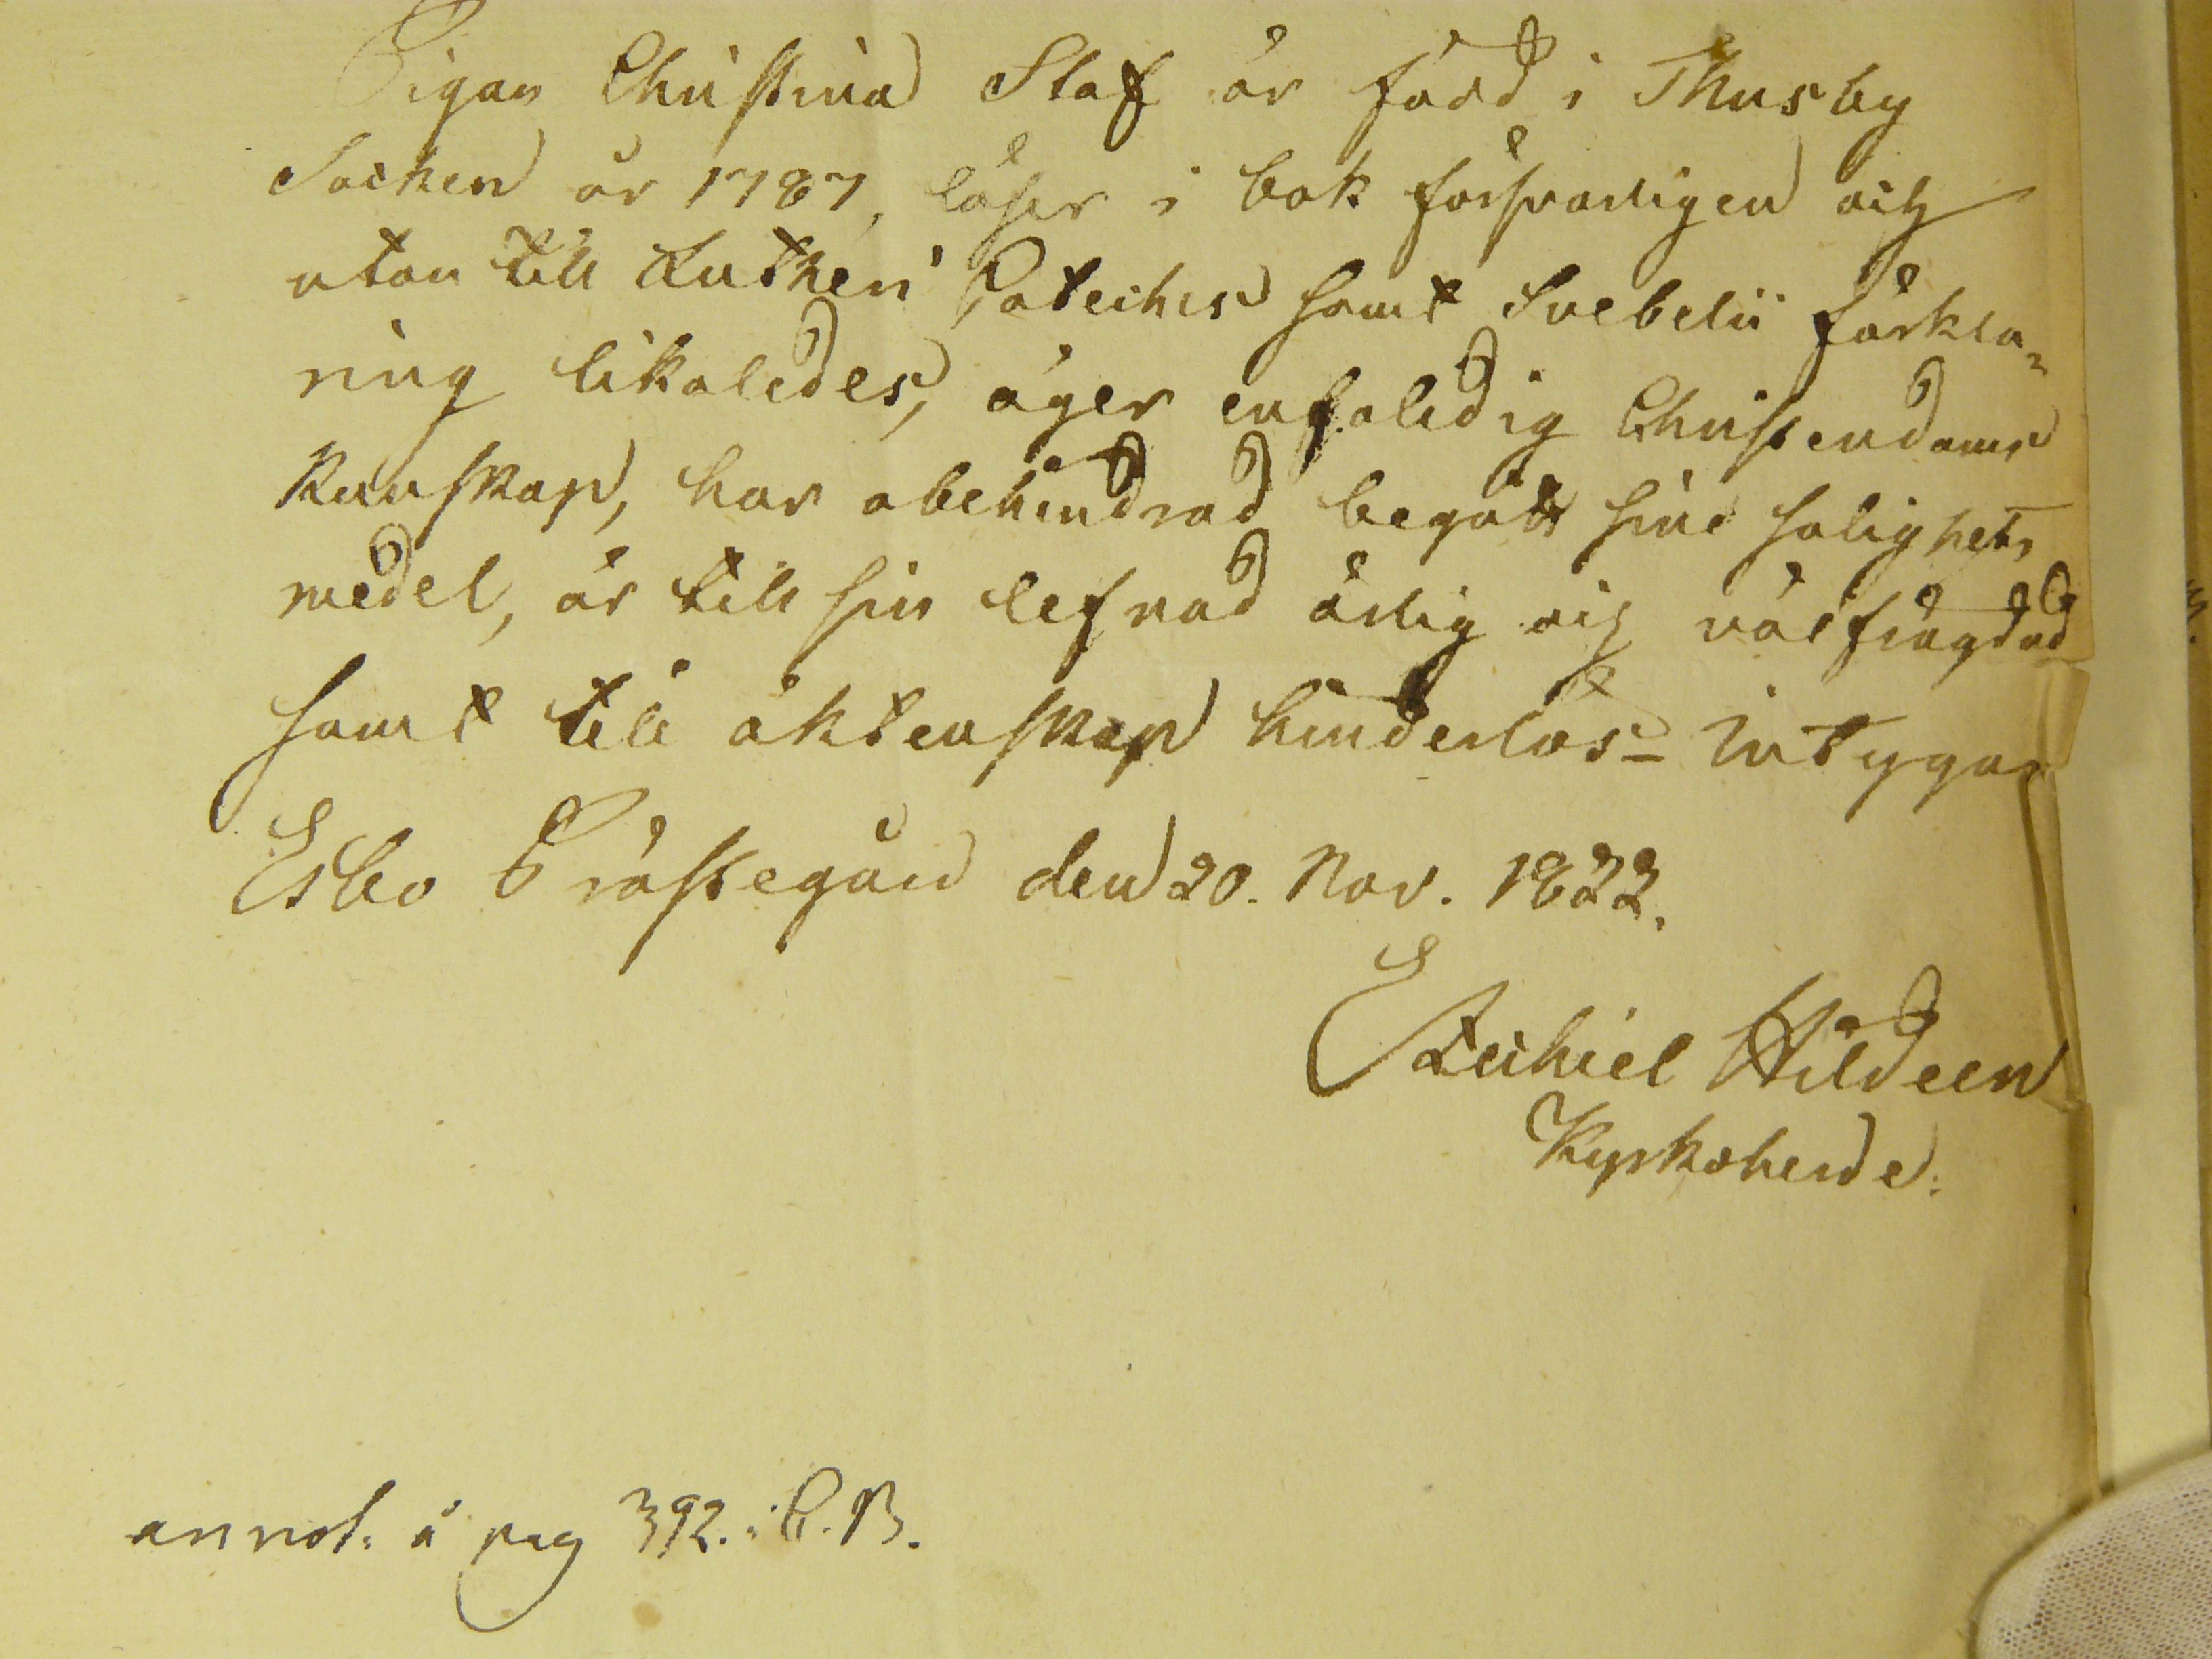 Pigan Christina Staf är född i Thusby
Socken år 1787, läser i bok försvarligen och
utan till Lutheri Cateches samt Svebelii förkla=
ring likaledes, äger enfaldig Christendoms
kunskap, har obehindrad begått sine salighets
medel, är till sin lefnad ärlig och välfrägdad
samt till äktenskap hinderlös - intygar
Esbo Prästegård den 20. Nov. 1822.
Ezechiel Hildeen
Kyrkoherde.
annot. å pag 392. i C. B.